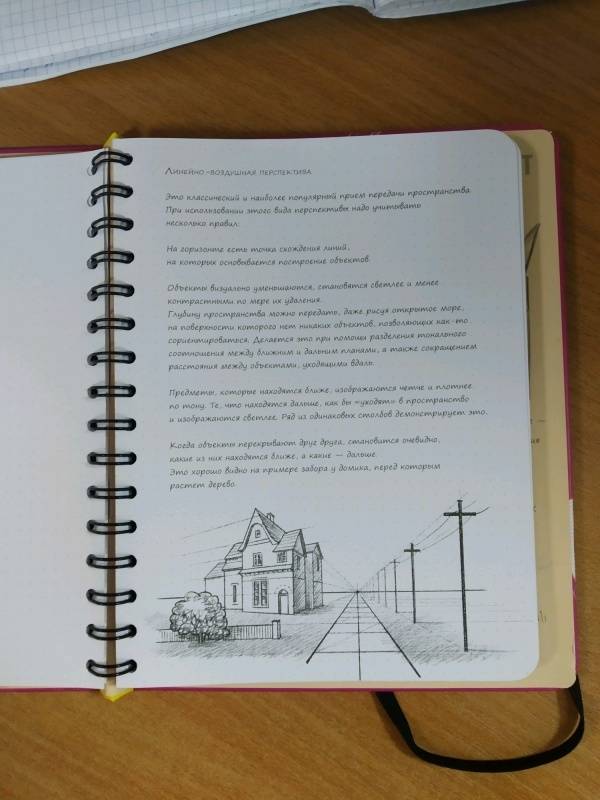 Линейно-воздушная перспектива
Это классический и наиболее популярный прием передачи пространства.
При использовании этого вида перспективы надо учитывать
несколько правил:
На горизонте есть точка схождения линий,
на которых основывается построение объектов.
Объекты визуально уменьшаются, становятся светлее и менее
контрастными по мере их удаления.
Глубину пространства можно передать, даже рисуя открытое море,
на поверхности которого нет никаких объектов, позволяющих как-то
сориентироваться. Делается это при помощи разделения тонального
соотношения между ближним и дальним планами, а также сокращением
расстояния между объектами, уходящими вдаль.
Предметы, которые находятся ближе, изображаются четче и плотнее
по тону. Те, что находятся дальше, как бы «уходят» в пространство
и изображаются светлее. Ряд из одинаковых столбов демонстрирует это.
Когда объекты перекрывают друг друга, становится очевидно,
какие из них находятся ближе, а какие — дальше.
Это хорошо видно на примере забора у домика, перед которым
растет дерево.